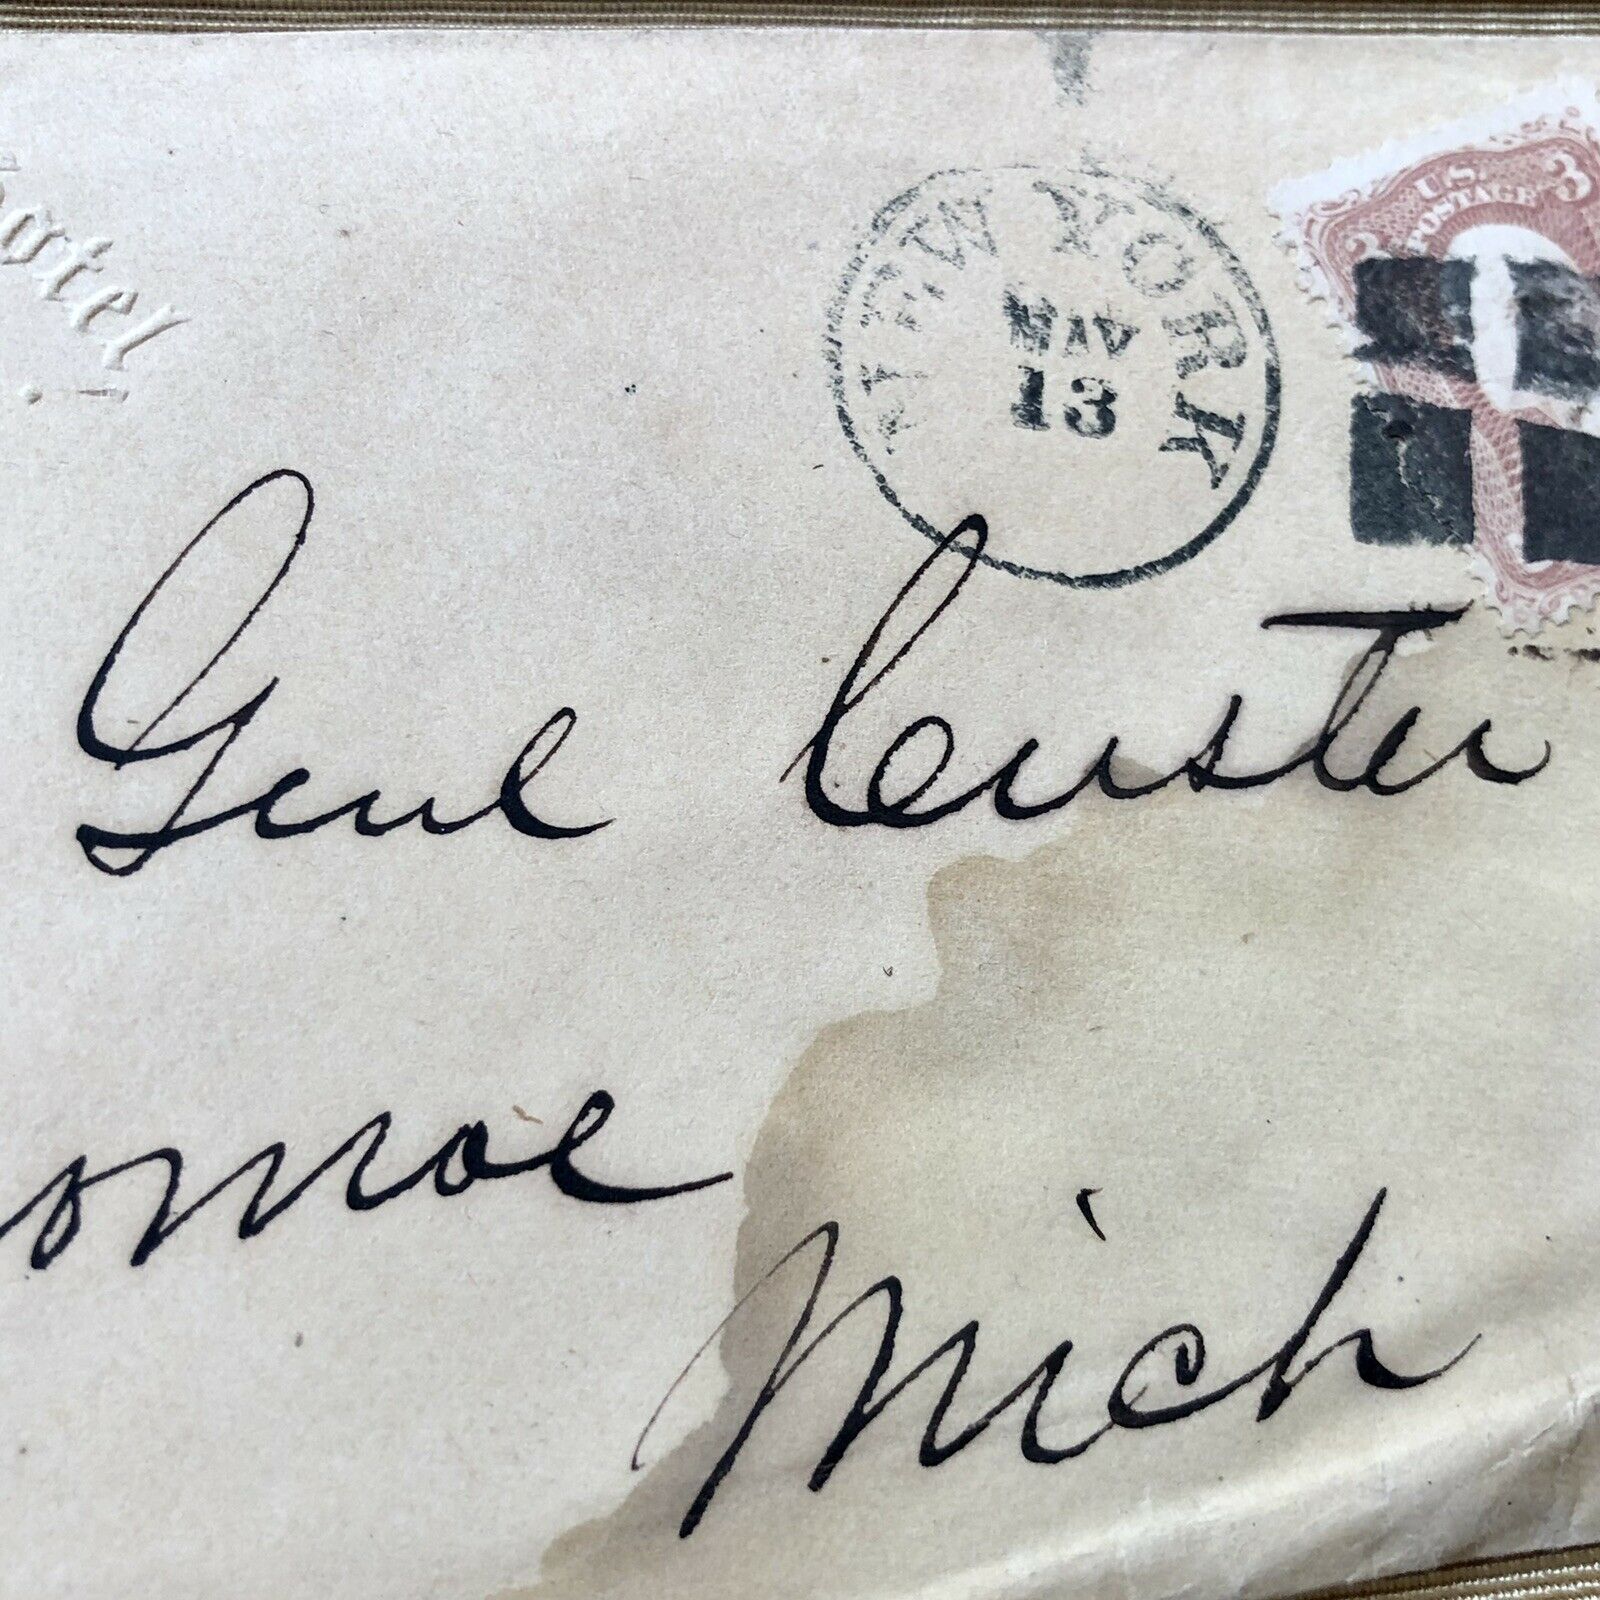 Hotel
N.Y.
NEW YORK
MAY
13
U.S.
POSTAGE
3
3
Genl Custer
onroe
Mich